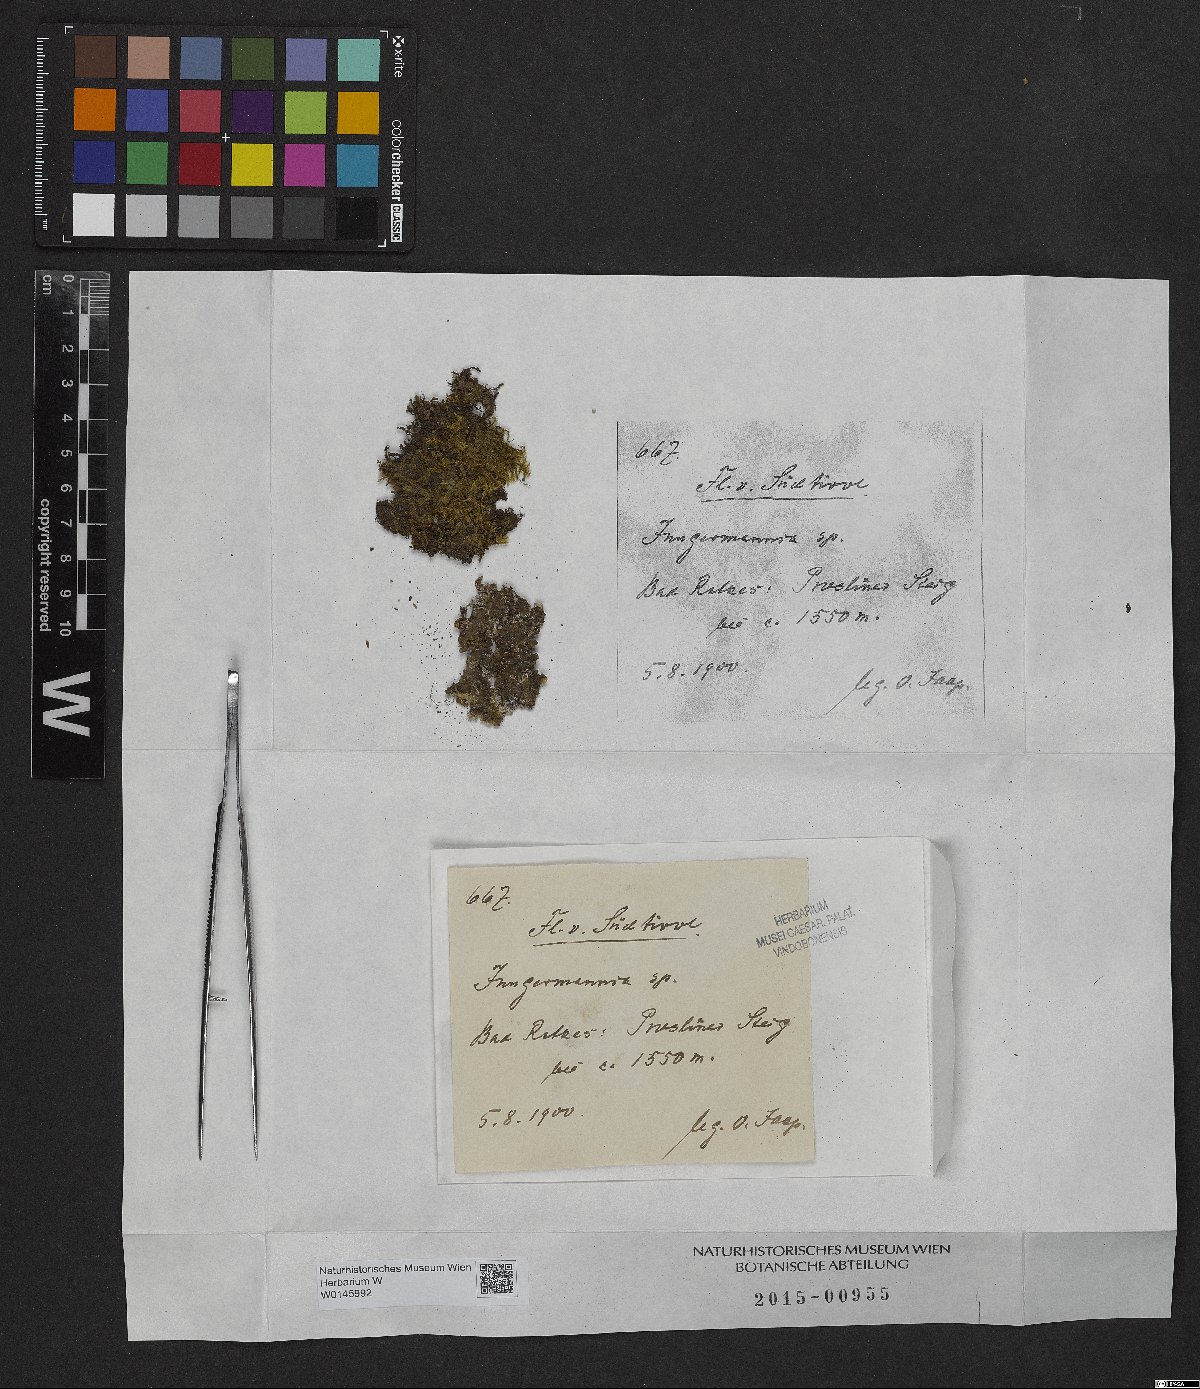 x-rite
colorchecker CLASSIC
mm
0 1 2 3 4 5 6 7 8 9 10
cm
copyright reserved
W
667.
Fl. v. Südtirol.
Jungermannia sp.
Bad Ratzes: Proslines Steig
bei c. 1550 m.
5.8.1900.
leg. O. Jaap.
667.
Fl. v. Südtirol.
Jungermannia sp.
Bad Ratzes: Proslines Steig
bei c. 1550 m.
5.8.1900.
leg. O. Jaap.
HERBARIUM
MUSEI CAESAR. PALAT.
VINDOBONENSIS
Naturhistorisches Museum Wien
Herbarium W
W0145992
NATURHISTORISCHES MUSEUM WIEN
BOTANISCHE ABTEILUNG
2015-00955